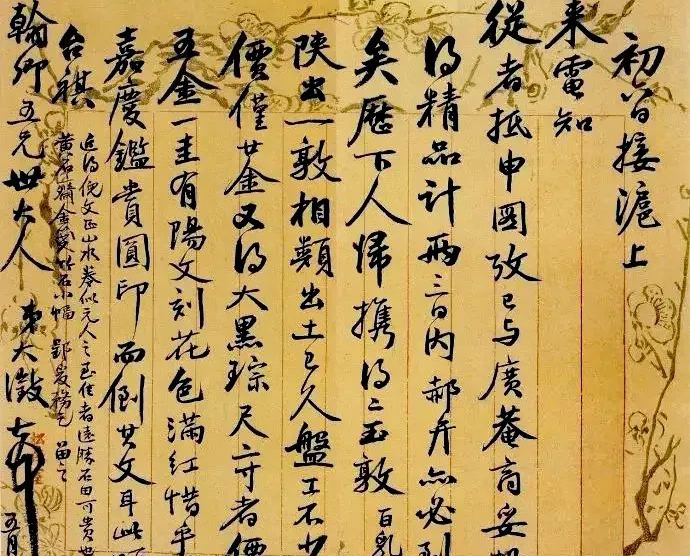 初八日接滬上
来電知
從者抵申國攷已与廣菴商妥
得精品計兩三日内郝弁亦必到
矣歷下人歸攜得二玉敦百乳
陝出一敦相類出土已久盤工不少
價僅廿金又得大黑琮尺二寸者價
五金一圭有陽文刻花色滿紅惜乎
嘉慶鑑賞圓印而倒其文耳此
台祺
近得倪文正山水卷似元人之至佳者遠勝石田可貴也
黄石齋
石小幅
翰卿五兄世大人
吴大澂
五月